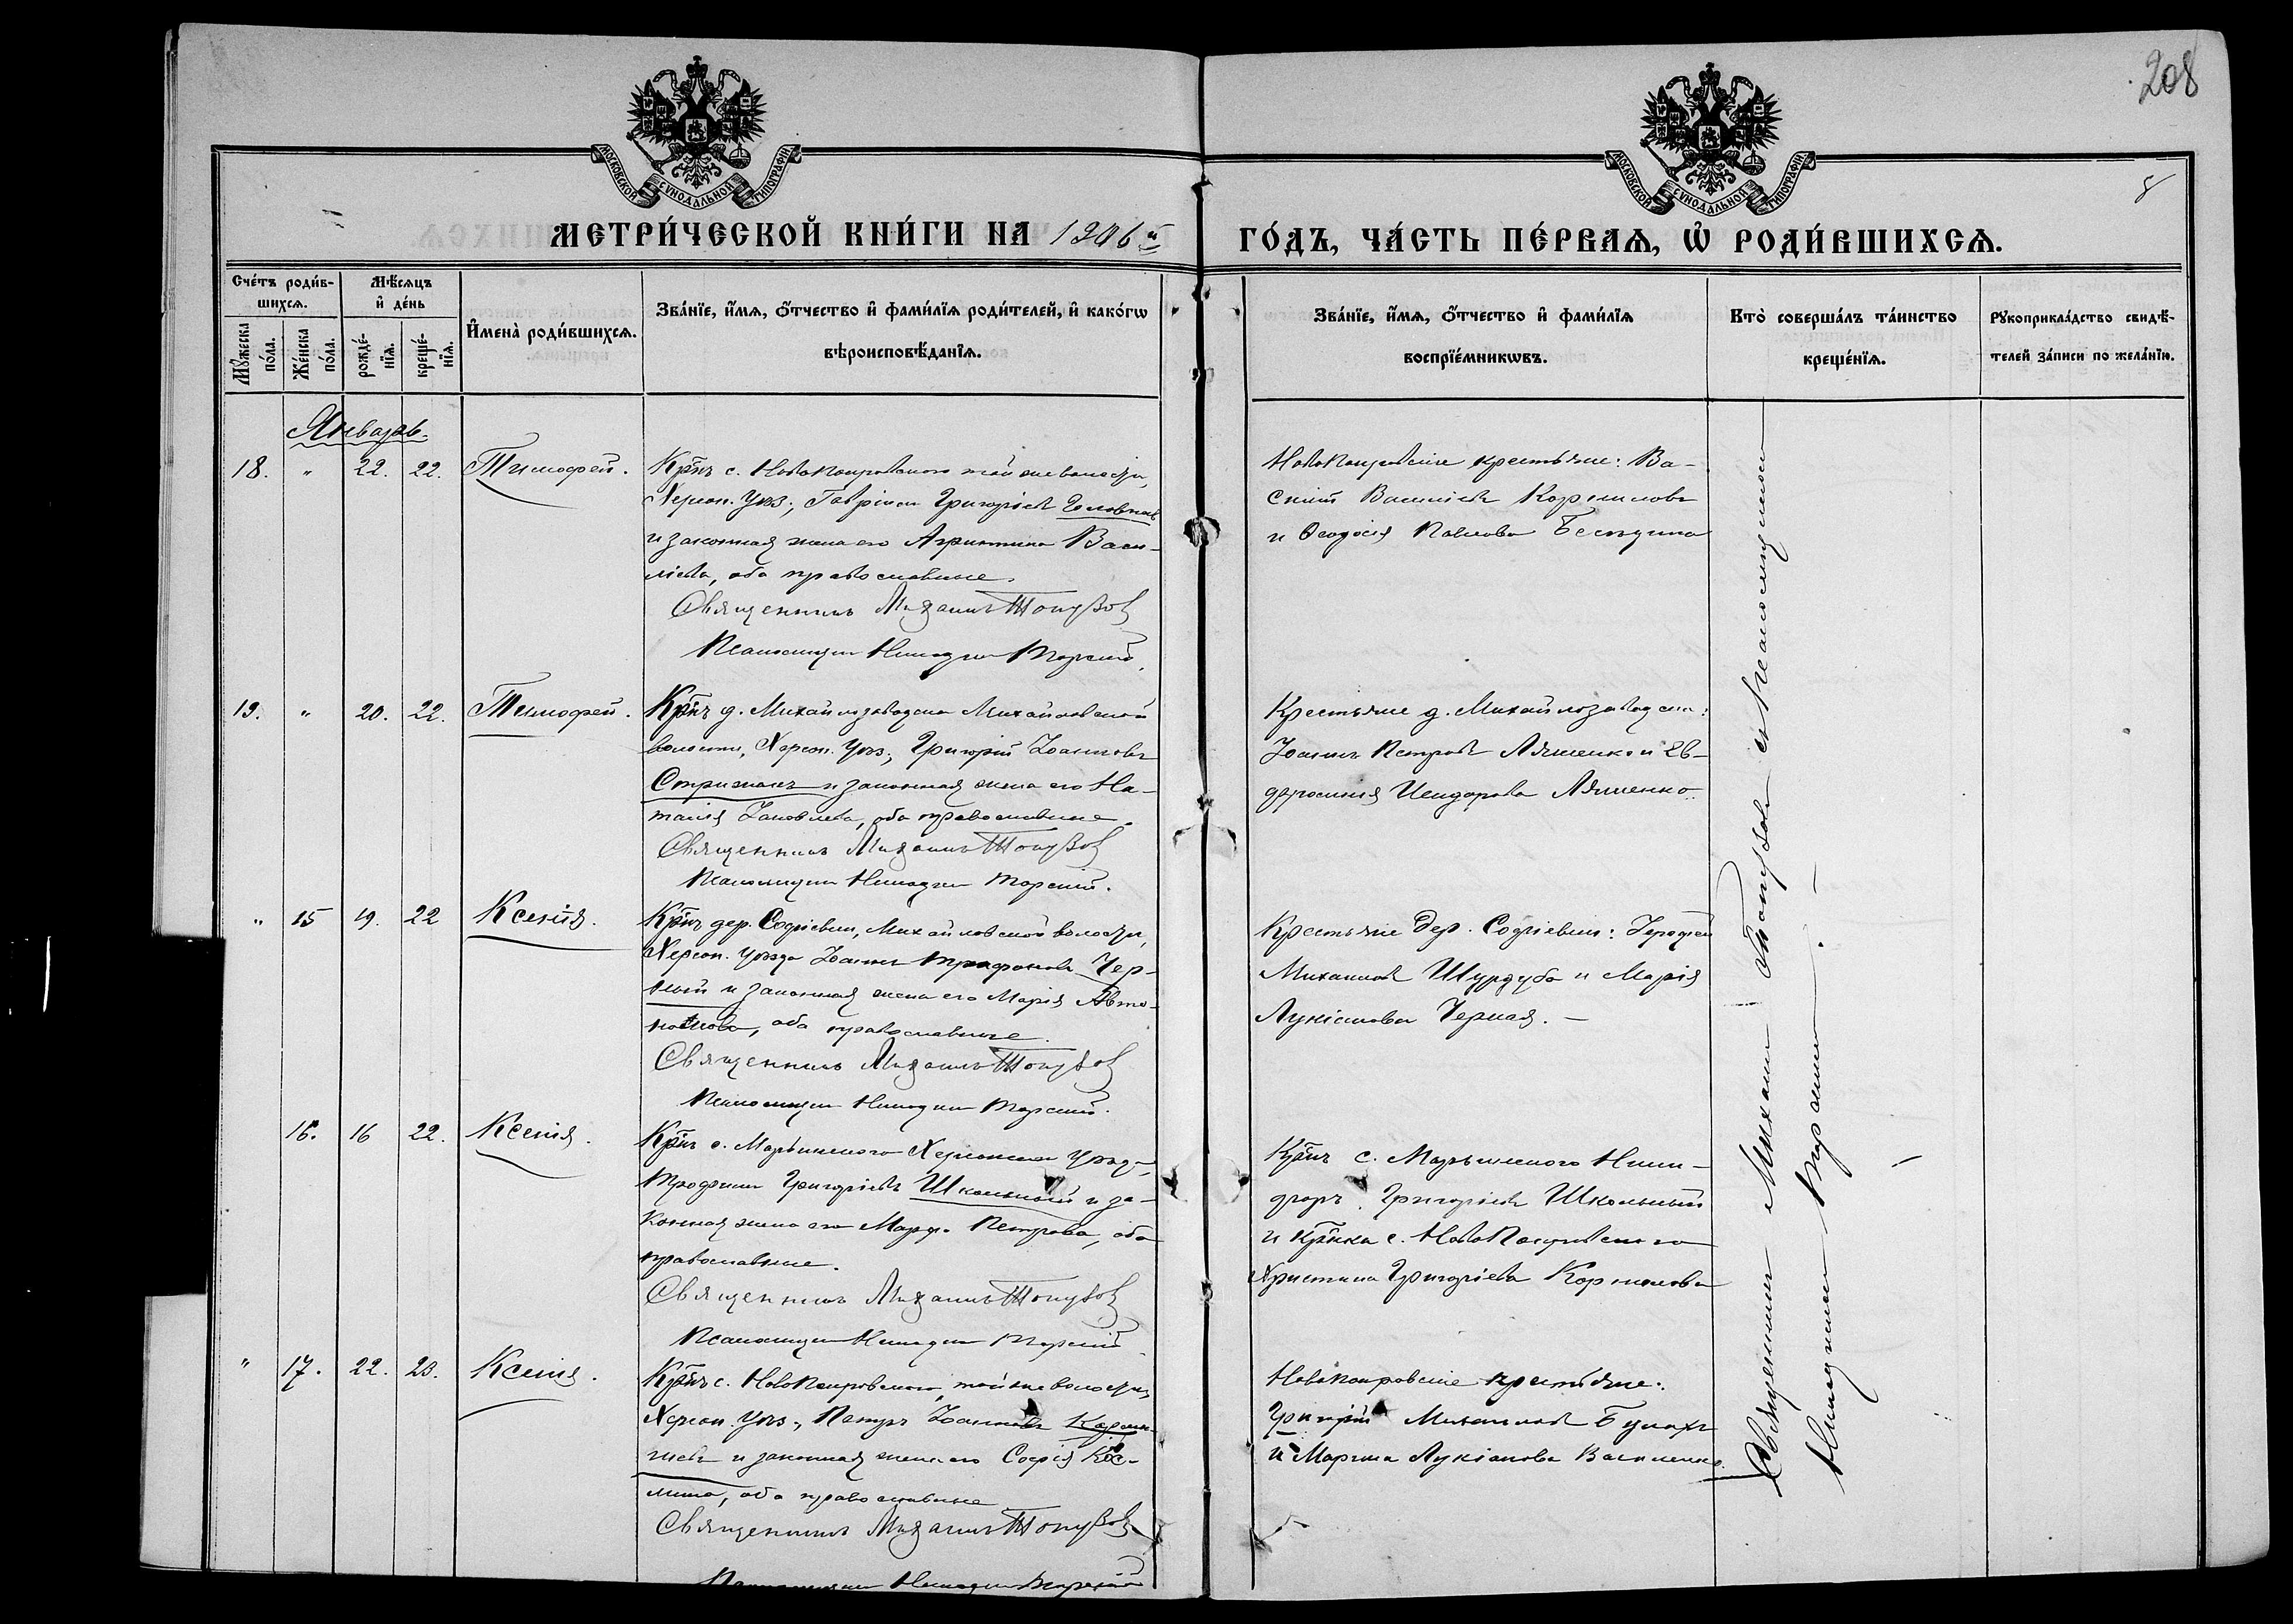 208
8
МОСКОВСКОЙ СѴНОДАЛЬНОЙ ТИПОГРАФІИ
МОСКОВСКОЙ СѴНОДАЛЬНОЙ ТИПОГРАФІИ
МЕТРИ́ЧЕСКОЙ КНИ́ГИ НА 1906й
ГО́ДЪ, ЧА́СТЬ ПЕ́РВАѦ, Ѡ҆ РОДИ́ВШИХСѦ.
Сче́тъ роди́в-
шихсѧ.
Мꙋ́жеска по́ла.
Же́нска по́ла.
Мѣ́сѧцъ
и҆ де́нь
рожде́-
нїѧ.
креще́-
нїѧ.
И҆мена̀ роди́вшихсѧ.
Зва́нїе, и҆́мѧ, ѻ҆́тчество и҆ фами́лїѧ роди́телей, и҆ како́гѡ
вѣроисповѣ́данїѧ.
Зва́нїе, и҆́мѧ, ѻ҆́тчество и҆ фами́лїѧ
воспрїе́мникѡвъ.
Кто̀ соверша́лъ та́инство
креще́нїѧ.
Рꙋкоприкла́дство свидѣ́-
телей за́писи по жела́нїю.
Январь.
18. " 22. 22. Тимофей.
Кр͞нъ с. Новопокровскаго той же волости,
Херсон. уѣз., Гавріилъ Григоріевъ
и законная жена его Агриппина Васи-
ліева, оба православные.
Священникъ Михаилъ Топузов
Псаломщик
Новопокровскіе крестьяне: Ва-
силій Васильевъ Корниловъ
и Ѳеодосія Павлова
19. " 20. 22. Тимофей.
Кр͞нъ д. Михайлозаводска Михайловской
волости, Херсон. уѣз., Григорій Іоанновъ
Стрижакъ и законная жена его На-
талія Іаковлева, оба православные.
Священникъ Михаилъ Топузов
Псаломщик
Крестьяне д. Михайлозаводска:
Іоаннъ Петровъ Ляшенко и Ев-
фросинія Исидорова Ляшенко.
" 15 19. 22 Ксенія.
Кр͞нъ дер. Софіевки, Михайловской волости,
Херсон. уѣзда Іоаннъ Трифоновъ Чер-
ный и законная жена его Марія Авто-
номова, оба православные.
Священникъ Михаилъ Топузов
Псаломщик
Крестьяне дер. Софіевки: Іерофей
Михаиловъ Шурдуба и Марія
Лукіанова Черная. —
16. 16 22. Ксенія.
Кр͞нъ с. Марьинскаго Херсонскаго уѣзда,
Трофимъ Григоріевъ Школьный и за-
конная жена его Марфа Петрова, оба
православные.
Священникъ Михаилъ Топузов
Псаломщик
Кр͞нъ с. Марьинскаго Ники-
форъ Григоріевъ Школьный
и кр͞нка с. Новопокровскаго
Христина Григоріева Корнилова
" 17. 22. 23. Ксенія.
Кр͞нъ с. Новопокровскаго, той же волости,
Херсон. уѣз., Петръ Іоанновъ
и законная жена его Софія Кос-
мина, оба православные
Священникъ Михаилъ Топузов
Псаломщик
Новопокровскіе крестьяне:
Григорій Михаиловъ Булахъ
и Марина Лукіанова Василенко.
Священникъ Михаилъ Топузовъ с псаломщикомъ